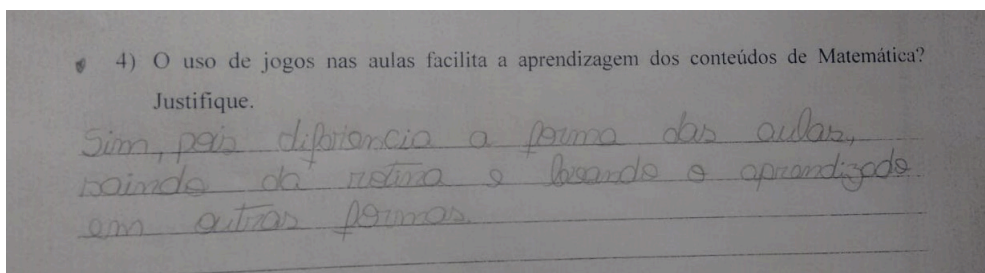 4) O uso de jogos nas aulas facilita a aprendizagem dos conteúdos de Matemática?
Justifique.
Sim, pois diferencia a forma das aulas,
saindo da rotina e levando o aprendizado
em outras formas.